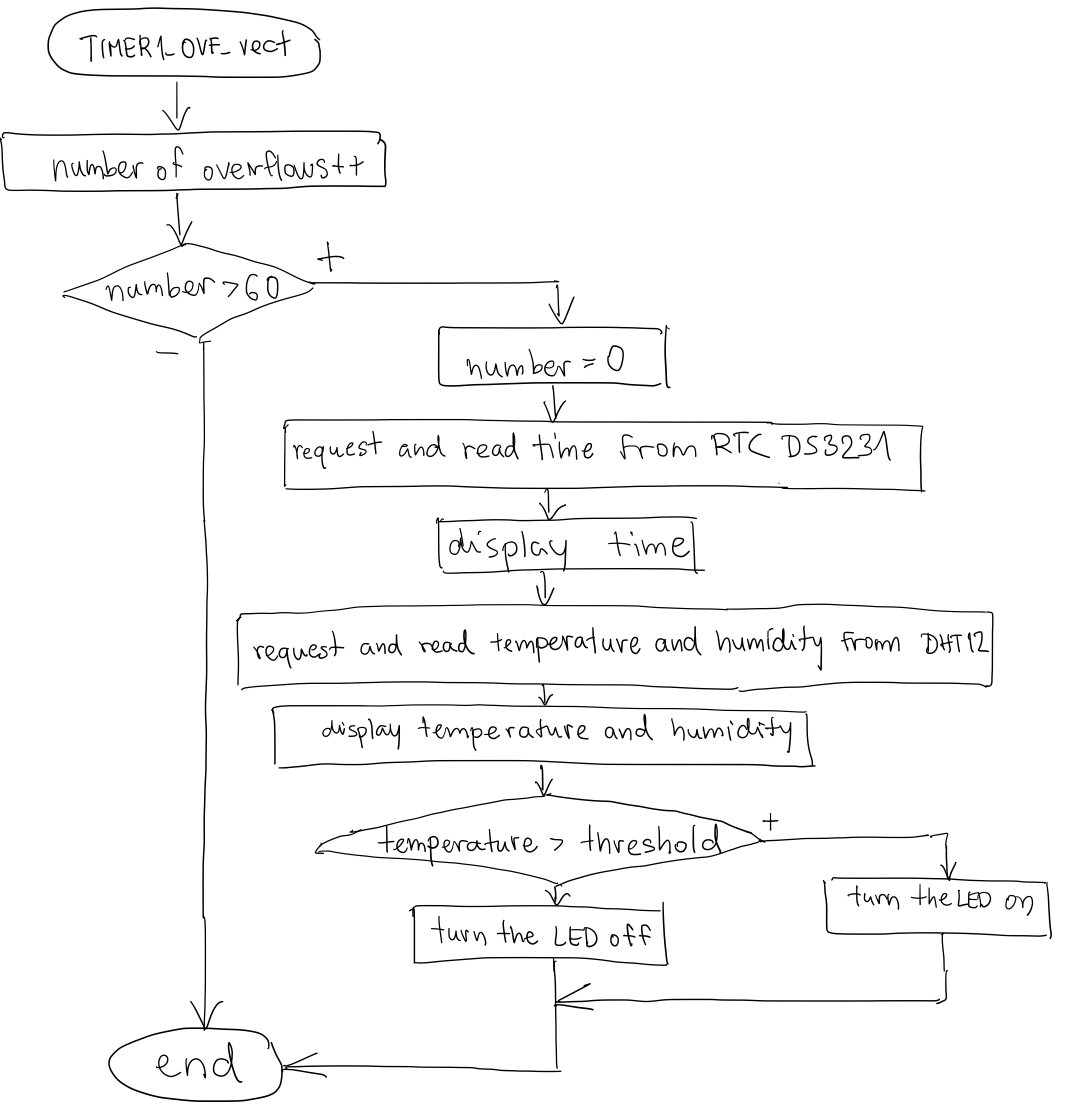 TIMER1_OVF_vect
number of overflows++
+
number > 60
−
number = 0
request and read time from RTC DS3231
display time
request and read temperature and humidity from DHT12
display temperature and humidity
+
temperature > threshold
turn the LED on
turn the LED off
end